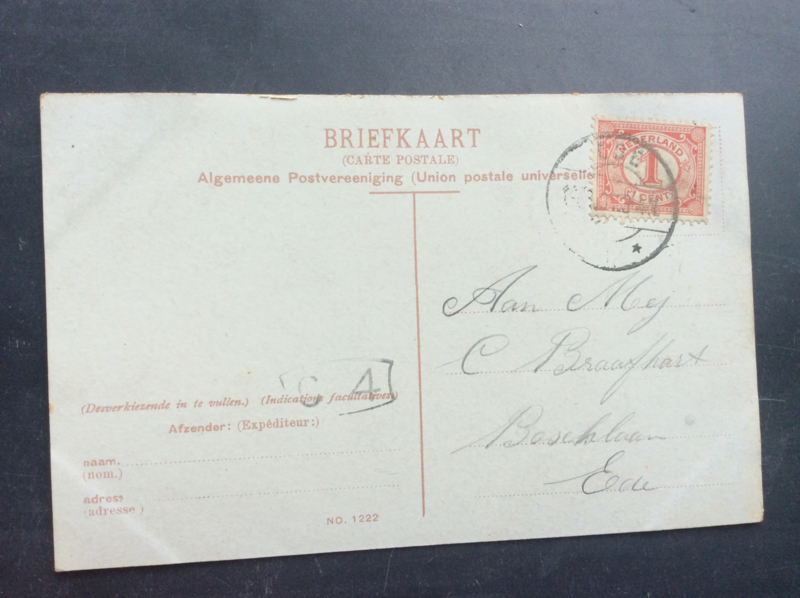 BRIEFKAART
(CARTE POSTALE)
Algemeene Postvereeniging (Union postale universelle
NEDERLAND
1
CENT
EDE
Aan Mej
C Braafhart
Boschlaan
Ede
C 4
(Desverkiezende in te vullen.) (Indications facultatives)
Afzender: (Expéditeur:)
naam.
(nom.)
adres
(adresse)
NO. 1222